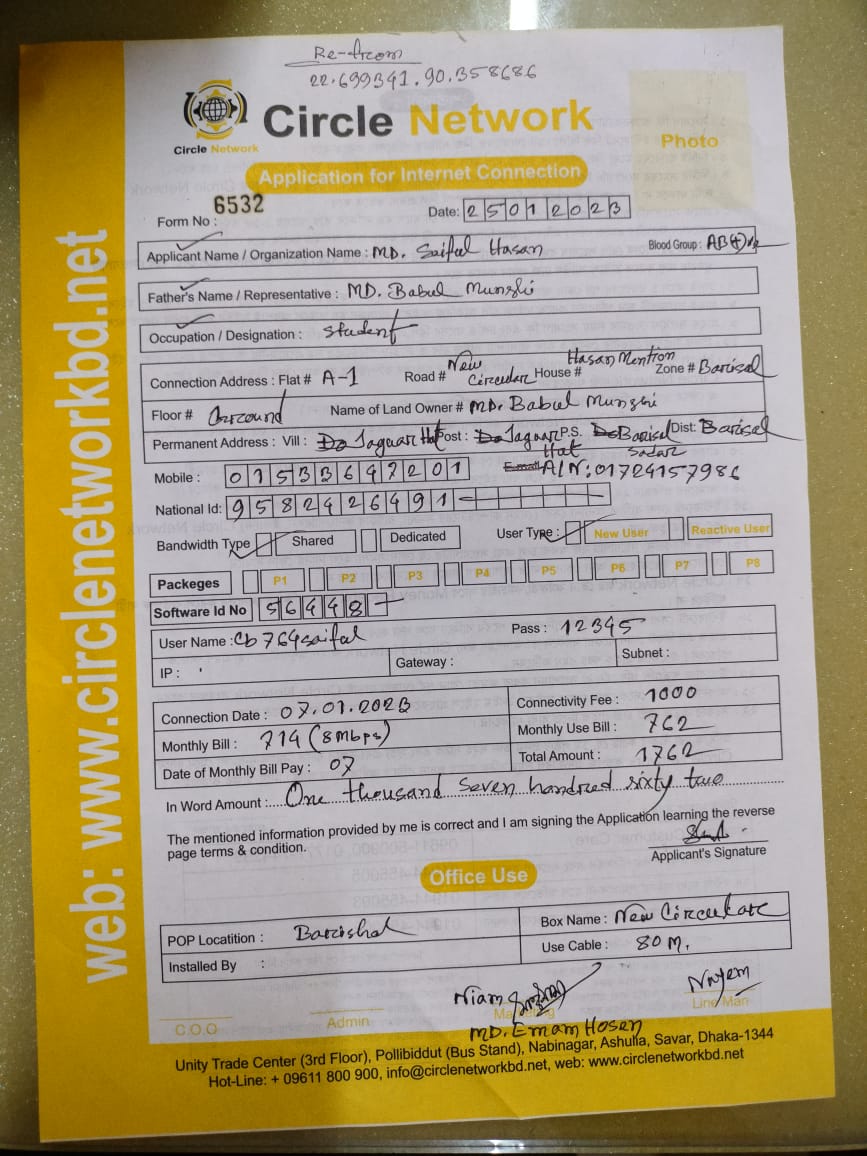 Re-from
22.699341.90.358686
Circle Network
Circle Network
Photo
Application for Internet Connection
Form No : 6532
Date: 25012023
Applicant Name / Organization Name : MD. Saiful Hasan Blood Group : AB(+)ve
Father's Name / Representative : MD. Babul Munshi
Occupation / Designation : Student
Connection Address : Flat # A-1 Road # New Circular House # Hasan Mention Zone # Barisal
Floor # Ground Name of Land Owner # MD. Babul Munshi
Permanent Address : Vill : Do Jaguar Hat Post : Do Jaguar Hat P.S. Do Barisal Sadar Dist: Barisal
Mobile : 01533697201 Email A/N: 01724157986
National Id: 9582426491
Bandwidth Type Shared Dedicated User Type : New User Reactive User
Packeges P1 P2 P3 P4 P5 P6 P7 P8
Software Id No 56448
User Name : Cb764saiful Pass : 12345
IP : Gateway : Subnet :
Connection Date : 07.01.2023 Connectivity Fee : 1000
Monthly Bill : 714 (8Mbps) Monthly Use Bill : 762
Date of Monthly Bill Pay : 07 Total Amount : 1762
In Word Amount : One thousand seven handred sixty two
The mentioned information provided by me is correct and I am signing the Application learning the reverse
page terms & condition.
Applicant's Signature
Office Use
POP Locatition : Barishal Box Name : New Circular
Installed By : Use Cable : 80 M.
Niam Nayem
C.O.O Admin Marketing Line Man
MD. Emam Hosen
Unity Trade Center (3rd Floor), Pollibiddut (Bus Stand), Nabinagar, Ashulia, Savar, Dhaka-1344
Hot-Line: + 09611 800 900, info@circlenetworkbd.net, web: www.circlenetworkbd.net
web: www.circlenetworkbd.net